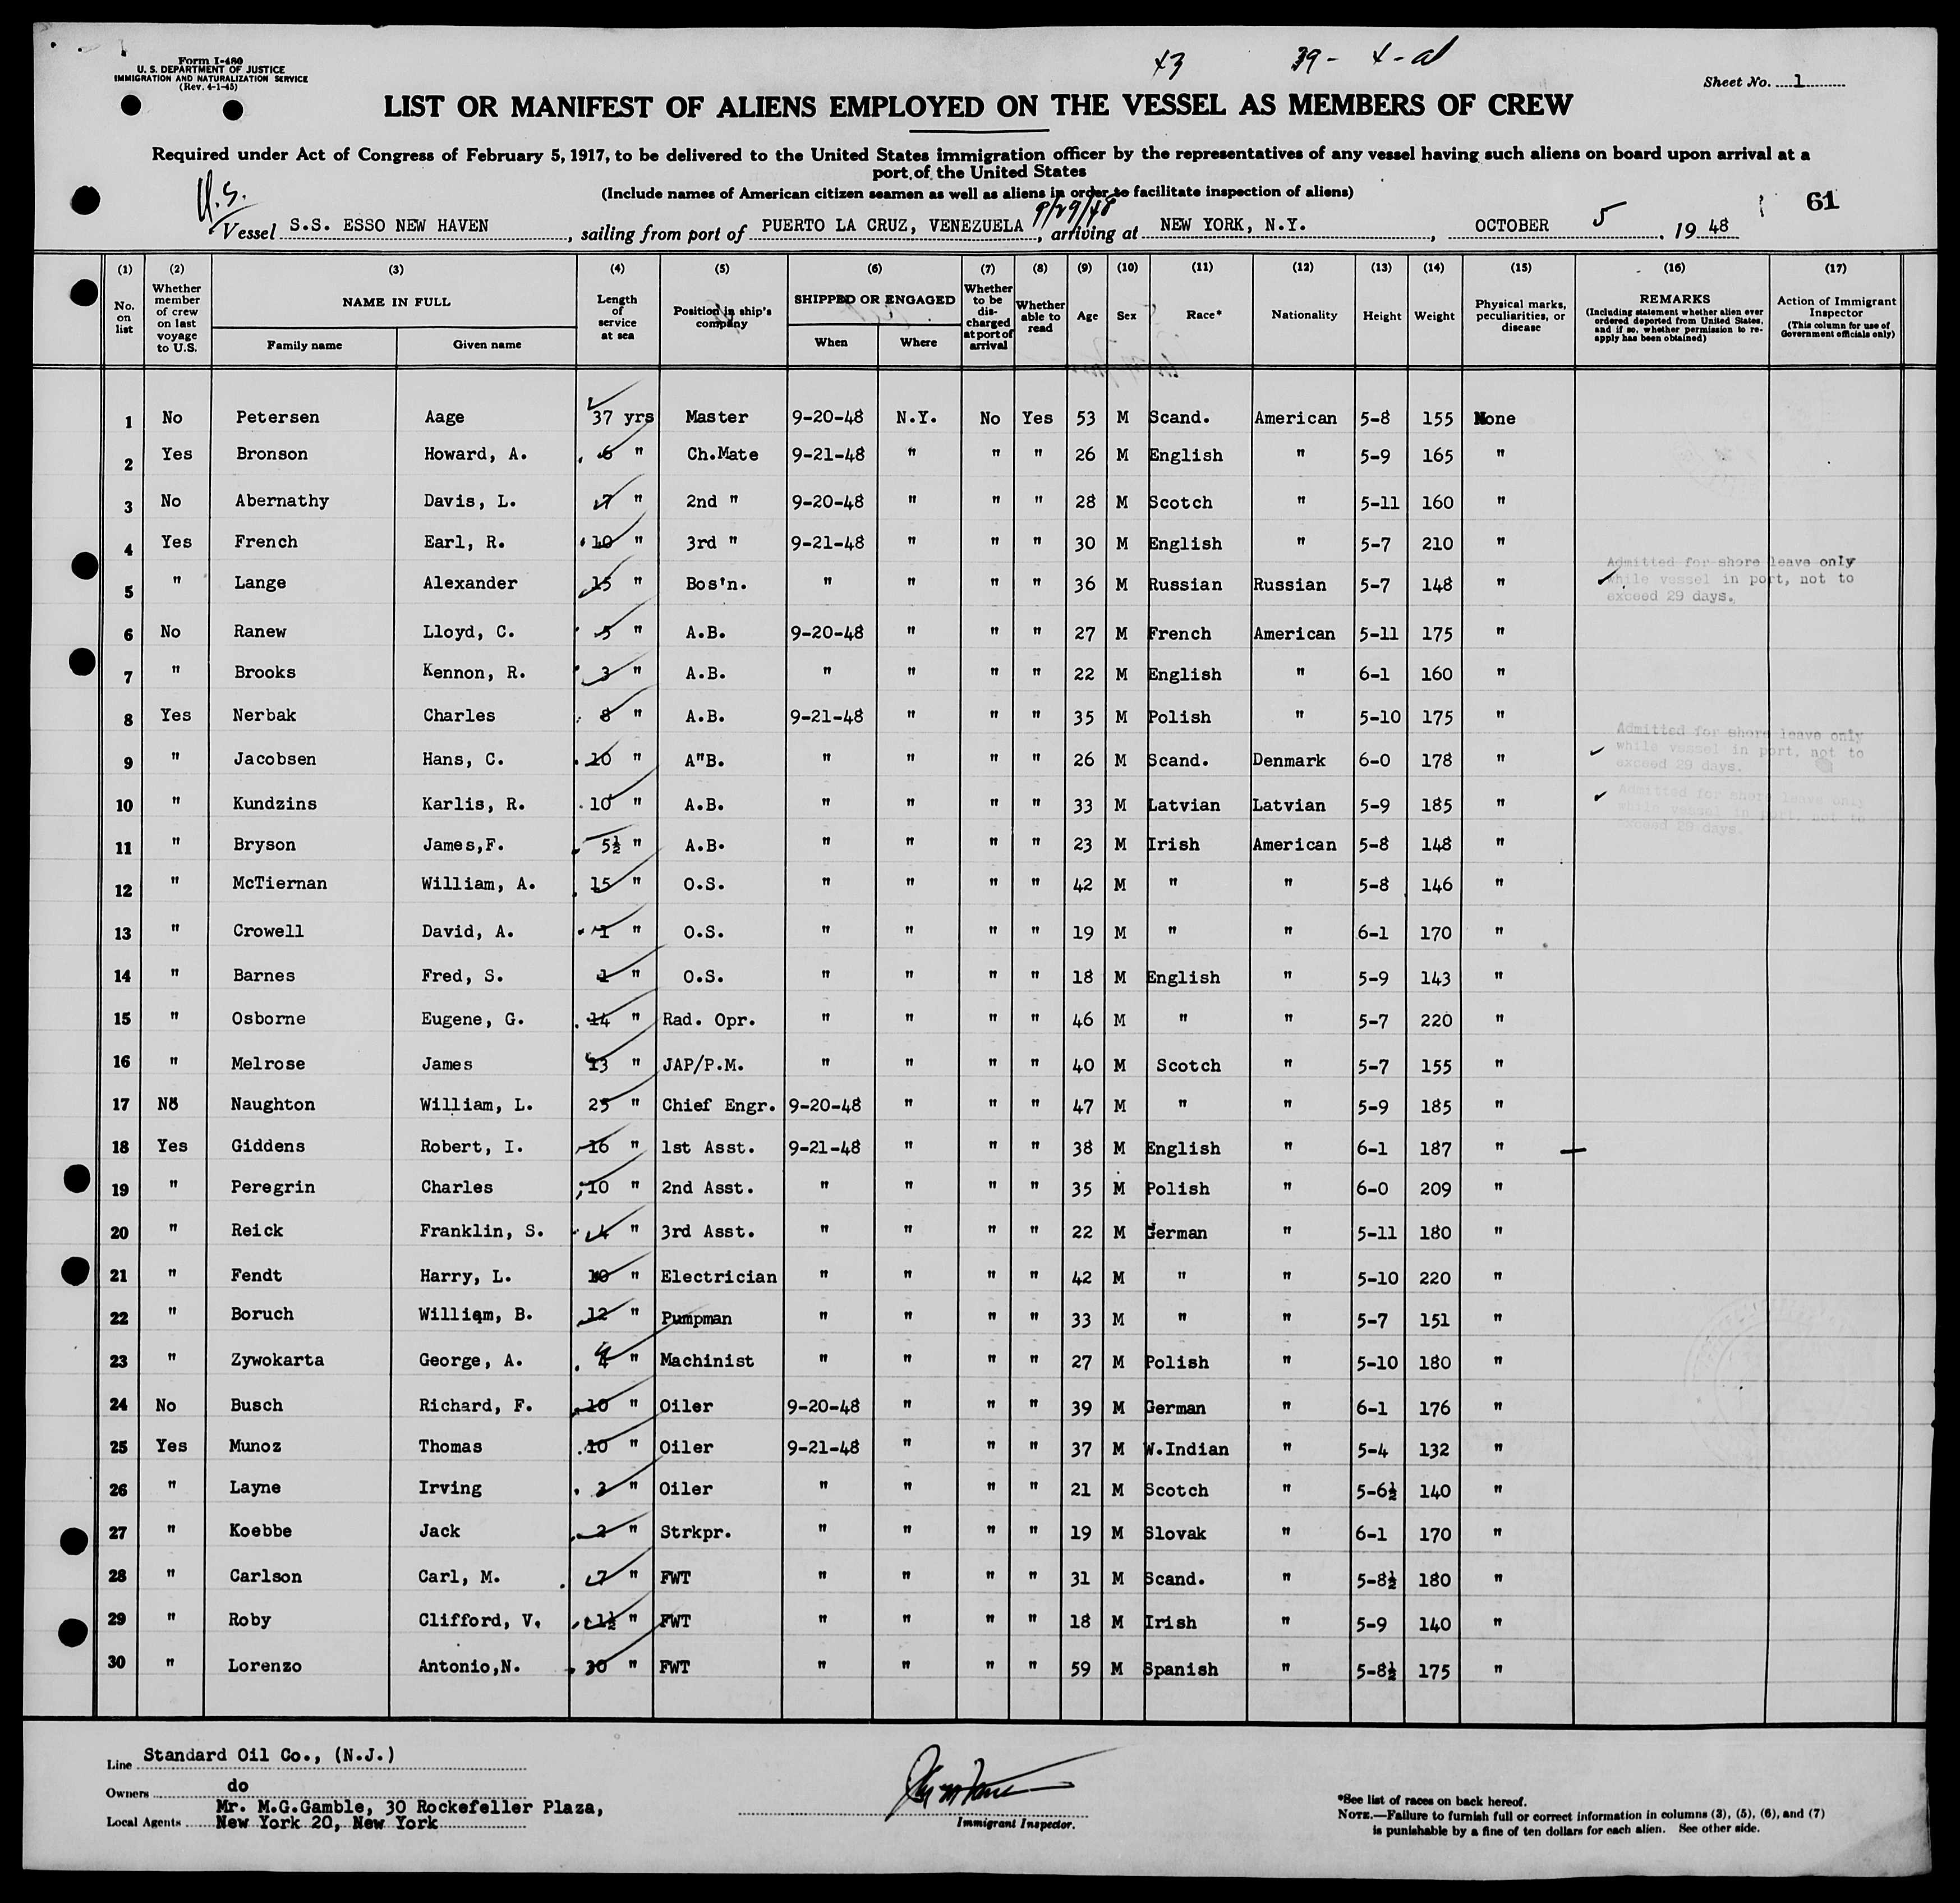 Form I-480
U. S. DEPARTMENT OF JUSTICE
IMMIGRATION AND NATURALIZATION SERVICE
(Rev. 4-1-45)
43 39- 4-al
Sheet No. 1
LIST OR MANIFEST OF ALIENS EMPLOYED ON THE VESSEL AS MEMBERS OF CREW
Required under Act of Congress of February 5, 1917, to be delivered to the United States immigration officer by the representatives of any vessel having such aliens on board upon arrival at a
port of the United States
(Include names of American citizen seamen as well as aliens in order to facilitate inspection of aliens)
U.S. 9/29/48 61
Vessel S.S. ESSO NEW HAVEN, sailing from port of PUERTO LA CRUZ, VENEZUELA, arriving at NEW YORK, N.Y., OCTOBER 5, 1948
(1) (2) (3) (4) (5) (6) (7) (8) (9) (10) (11) (12) (13) (14) (15) (16) (17)
No. on list
Whether member of crew on last voyage to U.S.
NAME IN FULL
Family name
Given name
Length of service at sea
Position in ship's company
SHIPPED OR ENGAGED
When
Where
Whether to be discharged at port of arrival
Whether able to read
Age
Sex
Race*
Nationality
Height
Weight
Physical marks, peculiarities, or disease
REMARKS
(Including statement whether alien ever ordered deported from United States, and if so, whether permission to reapply has been obtained)
Action of Immigrant Inspector
(This column for use of Government officials only)
1 No Petersen Aage 37 yrs Master 9-20-48 N.Y. No Yes 53 M Scand. American 5-8 155 None
2 Yes Bronson Howard, A. 6 " Ch.Mate 9-21-48 " " " 26 M English " 5-9 165 "
3 No Abernathy Davis, L. 7 " 2nd " 9-20-48 " " " 28 M Scotch " 5-11 160 "
4 Yes French Earl, R. 10 " 3rd " 9-21-48 " " " 30 M English " 5-7 210 "
5 " Lange Alexander 15 " Bos'n. " " " " 36 M Russian Russian 5-7 148 " Admitted for shore leave only while vessel in port, not to exceed 29 days.
6 No Ranew Lloyd, C. 5 " A.B. 9-20-48 " " " 27 M French American 5-11 175 "
7 " Brooks Kennon, R. 3 " A.B. " " " " 22 M English " 6-1 160 "
8 Yes Nerbak Charles 8 " A.B. 9-21-48 " " " 35 M Polish " 5-10 175 "
9 " Jacobsen Hans, C. 10 " A"B. " " " " 26 M Scand. Denmark 6-0 178 " Admitted for shore leave only while vessel in port, not to exceed 29 days.
10 " Kundzins Karlis, R. 10 " A.B. " " " " 33 M Latvian Latvian 5-9 185 " Admitted for shore leave only while vessel in port, not to exceed 29 days.
11 " Bryson James,F. 5½ " A.B. " " " " 23 M Irish American 5-8 148 "
12 " McTiernan William, A. 15 " O.S. " " " " 42 M " " 5-8 146 "
13 " Crowell David, A. 1 " O.S. " " " " 19 M " " 6-1 170 "
14 " Barnes Fred, S. 1 " O.S. " " " " 18 M English " 5-9 143 "
15 " Osborne Eugene, G. 14 " Rad. Opr. " " " " 46 M " " 5-7 220 "
16 " Melrose James 13 " JAP/P.M. " " " " 40 M Scotch " 5-7 155 "
17 No Naughton William, L. 25 " Chief Engr. 9-20-48 " " " 47 M " " 5-9 185 "
18 Yes Giddens Robert, I. 16 " 1st Asst. 9-21-48 " " " 38 M English " 6-1 187 "
19 " Peregrin Charles 10 " 2nd Asst. " " " " 35 M Polish " 6-0 209 "
20 " Reick Franklin, S. 4 " 3rd Asst. " " " " 22 M German " 5-11 180 "
21 " Fendt Harry, L. 10 " Electrician " " " " 42 M " " 5-10 220 "
22 " Boruch William, B. 12 " Pumpman " " " " 33 M " " 5-7 151 "
23 " Zywokarta George, A. 4 " Machinist " " " " 27 M Polish " 5-10 180 "
24 No Busch Richard, F. 10 " Oiler 9-20-48 " " " 39 M German " 6-1 176 "
25 Yes Munoz Thomas 10 " Oiler 9-21-48 " " " 37 M W.Indian " 5-4 132 "
26 " Layne Irving 2 " Oiler " " " " 21 M Scotch " 5-6½ 140 "
27 " Koebbe Jack 2 " Strkpr. " " " " 19 M Slovak " 6-1 170 "
28 " Carlson Carl, M. 7 " FWT " " " " 31 M Scand. " 5-8½ 180 "
29 " Roby Clifford, V. 1½ " FWT " " " " 18 M Irish " 5-9 140 "
30 " Lorenzo Antonio,N. 30 " FWT " " " " 59 M Spanish " 5-8½ 175 "
Line Standard Oil Co., (N.J.)
Owners do
Local Agents Mr. M.G.Gamble, 30 Rockefeller Plaza,
New York 20, New York
Immigrant Inspector.
*See list of races on back hereof.
NOTE.—Failure to furnish full or correct information in columns (3), (5), (6), and (7)
is punishable by a fine of ten dollars for each alien. See other side.